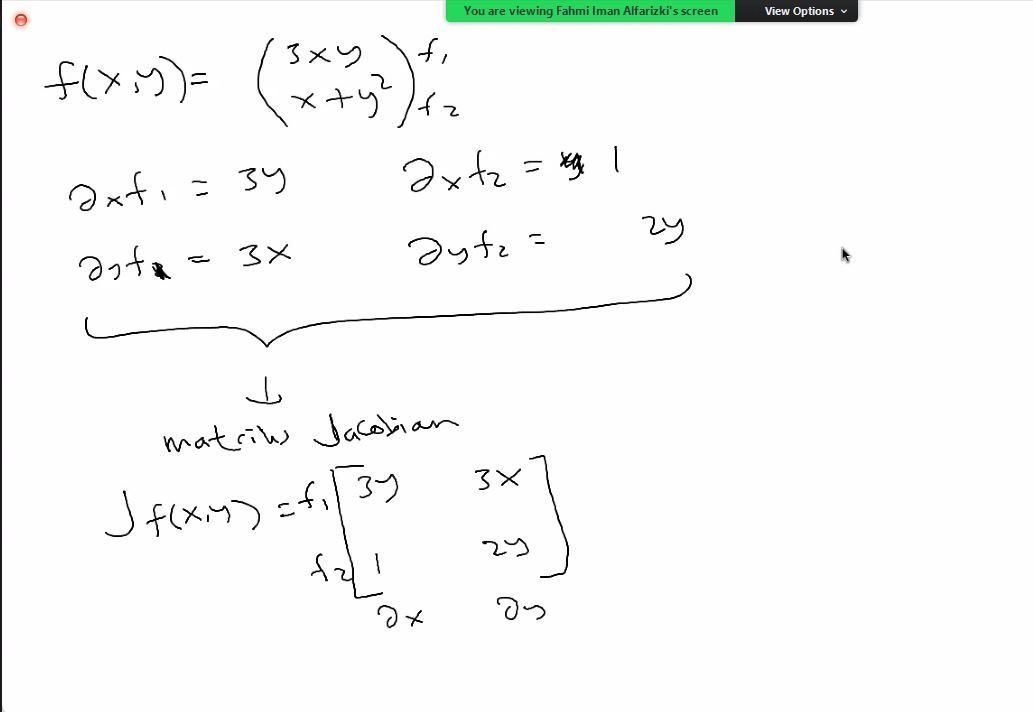 You are viewing Fahmi Iman Alfarizki's screen View Options
f(x,y) = (3xy) f₁
(x+y²) f₂
∂xf₁ = 3y ∂xf₂ = 1
∂yf₁ = 3x ∂yf₂ = 2y
↓
matriks Jacobian
Jf(x,y) = f₁ [3y 3x]
f₂ [1 2y]
∂x ∂y